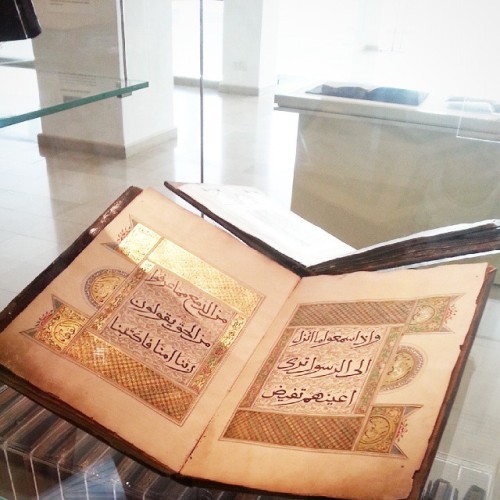 واذا سمعوا ما انزل
الى الرسول ترى
اعينهم تفيض
من الدمع مما عرفوا
من الحق يقولون
ربنا امنا فاكتبنا